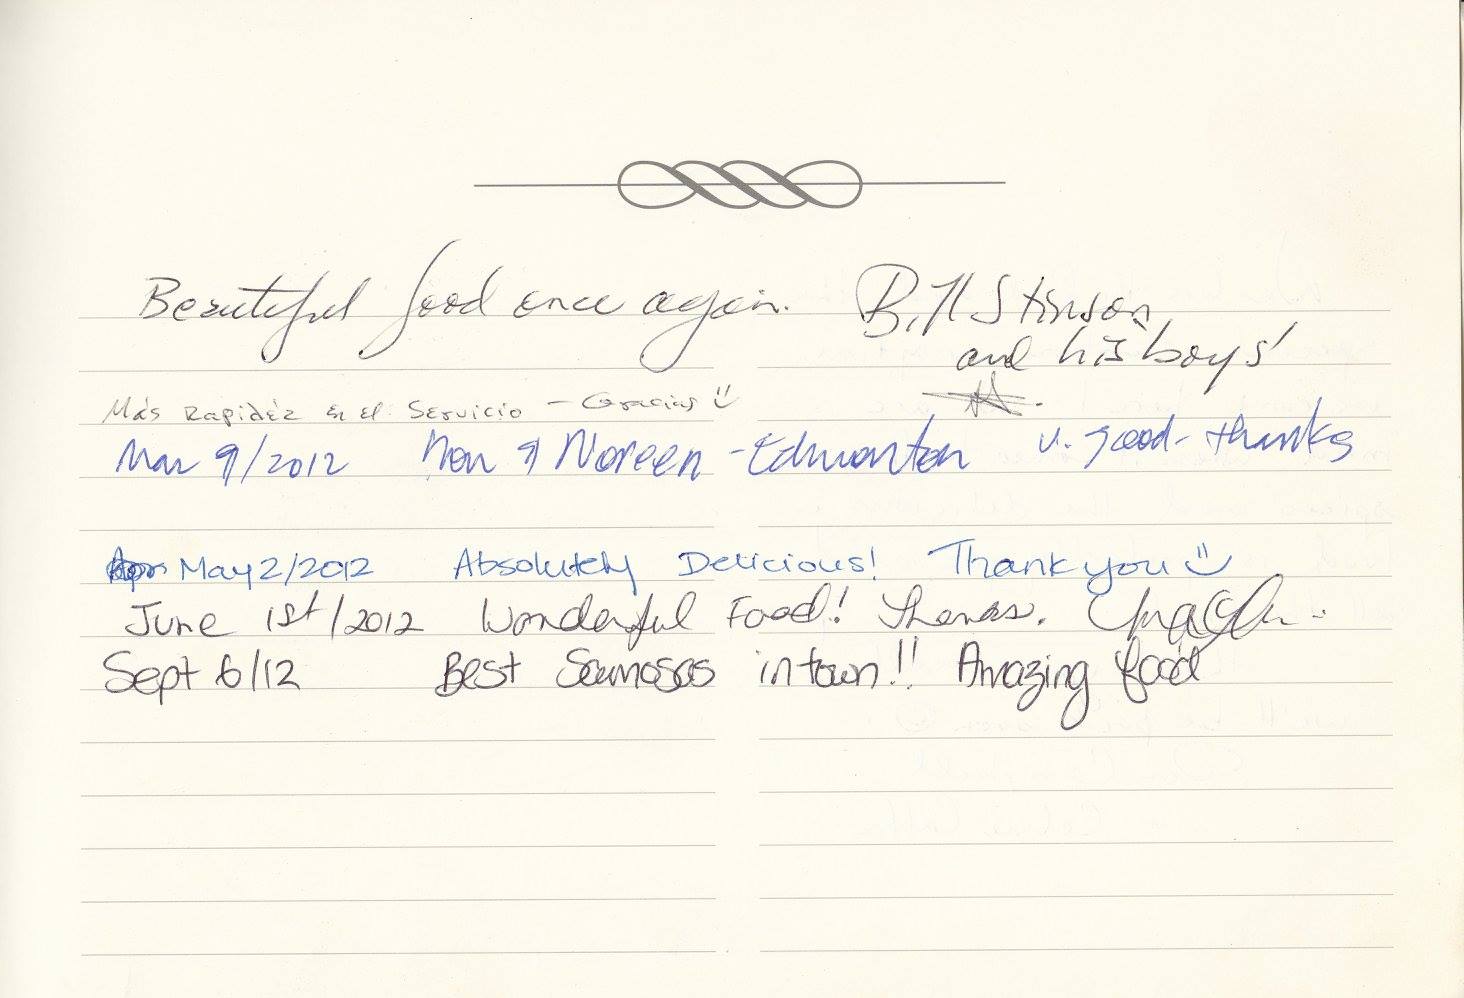 Beautiful food once again. Bill Stinson
and his boys'
Más Rapidéz en el Servicio - Gracias
Mar 9/2012 Noreen - Edmonton v. good - thanks
May 2/2012 Absolutely Delicious! Thank you
June 1st/2012 Wonderful Food! Thanks.
Sept 6/12 Best Samosas in town!! Amazing food